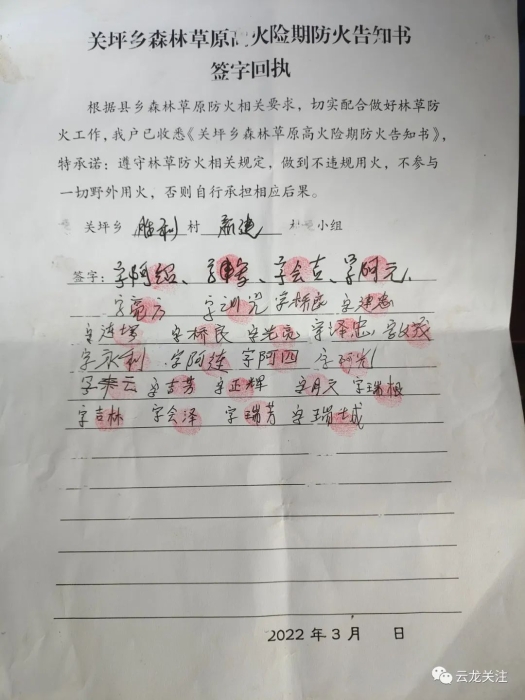 关坪乡森林草原高火险期防火告知书
签字回执
根据县乡森林草原防火相关要求，切实配合做好林草防
火工作，我户已收悉《关坪乡森林草原高火险期防火告知书》，
特承诺：遵守林草防火相关规定，做到不违规用火，不参与
一切野外用火，否则自行承担相应后果。
关坪乡 胜利 村 新建 小组
签字：字阿绍、字会吉、字阿元
字亮方 字桥良 字建忠
字桥良 字光亮 字泽忠
字永利 字阿连 字阿四
字云 字吉芳 字正辉 字月文 字瑞根
字吉林 字会泽 字瑞芳 字瑞城
2022年3月 日
云龙关注